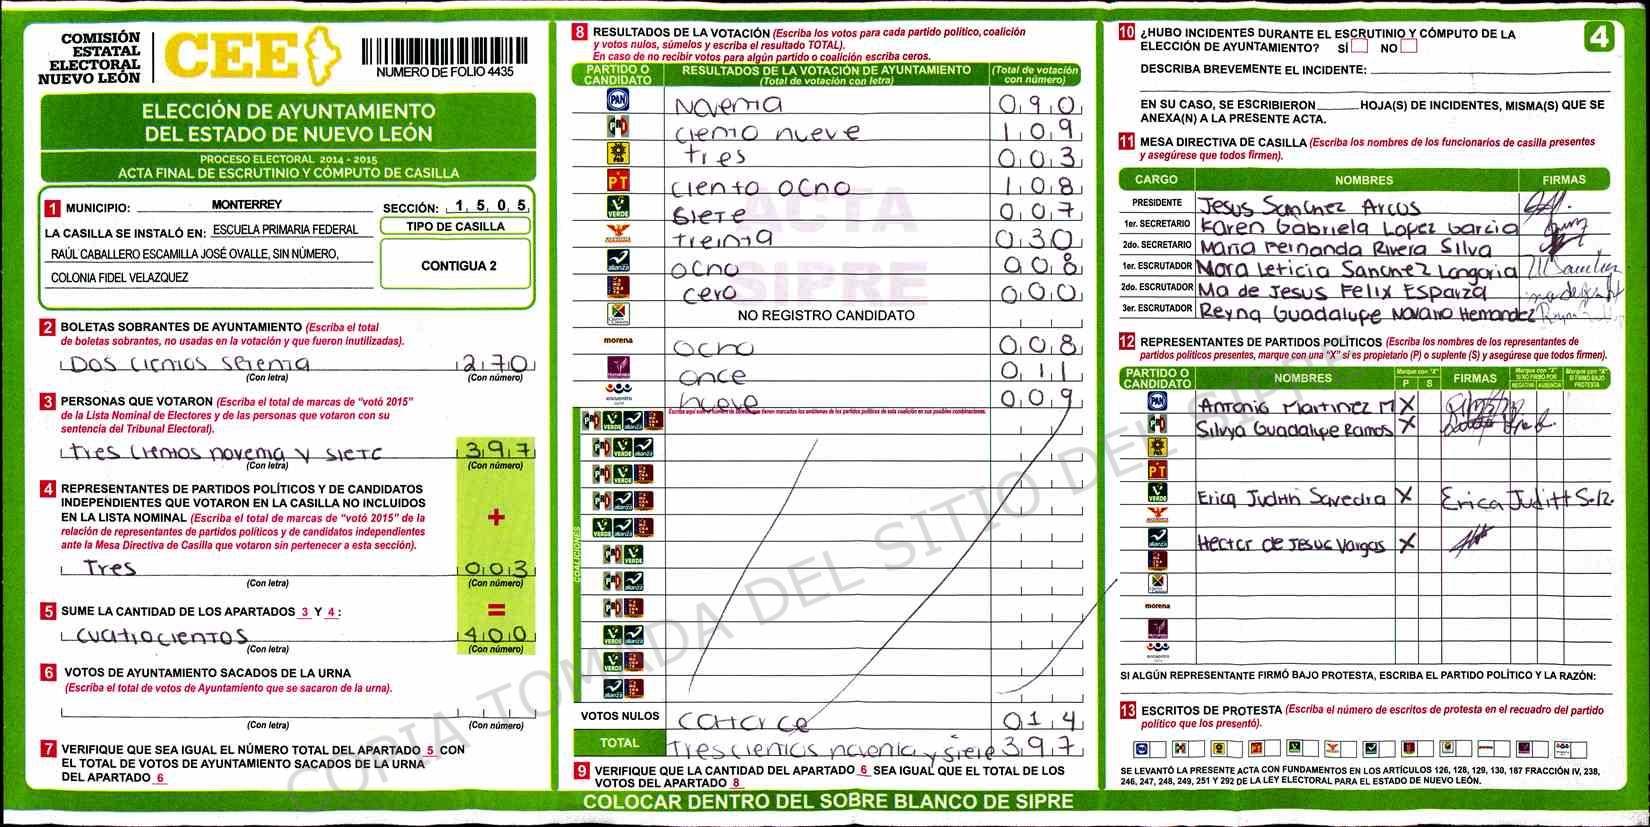 COMISIÓN
ESTATAL
ELECTORAL
NUEVO LEÓN
CEE
NUMERO DE FOLIO 4435
ELECCIÓN DE AYUNTAMIENTO
DEL ESTADO DE NUEVO LEÓN
PROCESO ELECTORAL 2014 - 2015
ACTA FINAL DE ESCRUTINIO Y CÓMPUTO DE CASILLA
1 MUNICIPIO: MONTERREY SECCIÓN: 1,5,0,5
LA CASILLA SE INSTALÓ EN: ESCUELA PRIMARIA FEDERAL
RAÚL CABALLERO ESCAMILLA JOSÉ OVALLE, SIN NÚMERO,
COLONIA FIDEL VELAZQUEZ
TIPO DE CASILLA
CONTIGUA 2
2 BOLETAS SOBRANTES DE AYUNTAMIENTO (Escriba el total
de boletas sobrantes, no usadas en la votación y que fueron inutilizadas).
Dos cientos setenta 2,7,0
(Con letra) (Con número)
3 PERSONAS QUE VOTARON (Escriba el total de marcas de "votó 2015"
de la Lista Nominal de Electores y de las personas que votaron con su
sentencia del Tribunal Electoral).
tres cientos noventa y siete 3,9,7
(Con letra) (Con número)
4 REPRESENTANTES DE PARTIDOS POLÍTICOS Y DE CANDIDATOS
INDEPENDIENTES QUE VOTARON EN LA CASILLA NO INCLUIDOS
EN LA LISTA NOMINAL (Escriba el total de marcas de "votó 2015" de la
relación de representantes de partidos políticos y de candidatos independientes
ante la Mesa Directiva de Casilla que votaron sin pertenecer a esta sección).
+
Tres 0,0,3
(Con letra) (Con número)
5 SUME LA CANTIDAD DE LOS APARTADOS 3 Y 4: =
cuatrocientos 4,0,0
(Con letra) (Con número)
6 VOTOS DE AYUNTAMIENTO SACADOS DE LA URNA
(Escriba el total de votos de Ayuntamiento que se sacaron de la urna).
(Con letra) (Con número)
7 VERIFIQUE QUE SEA IGUAL EL NÚMERO TOTAL DEL APARTADO 5 CON
EL TOTAL DE VOTOS DE AYUNTAMIENTO SACADOS DE LA URNA
DEL APARTADO 6
8 RESULTADOS DE LA VOTACIÓN (Escriba los votos para cada partido político, coalición
y votos nulos, súmelos y escriba el resultado TOTAL).
En caso de no recibir votos para algún partido o coalición escriba ceros.
PARTIDO O CANDIDATO RESULTADOS DE LA VOTACIÓN DE AYUNTAMIENTO (Total de votación con letra) (Total de votación con número)
PAN Noventa 0,9,0
PRD ciento nueve 1,0,9
tres 0,0,3
PT ciento ocho 1,0,8
VERDE siete 0,0,7
treinta 0,3,0
alianza ocho 0,0,8
cero 0,0,0
NO REGISTRO CANDIDATO
morena ocho 0,0,8
once 0,1,1
encuentro nueve 0,0,9
COALICIONES
VOTOS NULOS catorce 0,1,4
TOTAL Trescientos noventa y siete 3,9,7
9 VERIFIQUE QUE LA CANTIDAD DEL APARTADO 6 SEA IGUAL QUE EL TOTAL DE LOS
VOTOS DEL APARTADO 8
COLOCAR DENTRO DEL SOBRE BLANCO DE SIPRE
ACTA
SIPRE
COPIA TOMADA DEL SITIO DEL SIPRE
10 ¿HUBO INCIDENTES DURANTE EL ESCRUTINIO Y CÓMPUTO DE LA
ELECCIÓN DE AYUNTAMIENTO? SÍ NO
4
DESCRIBA BREVEMENTE EL INCIDENTE:
EN SU CASO, SE ESCRIBIERON HOJA(S) DE INCIDENTES, MISMA(S) QUE SE
ANEXA(N) A LA PRESENTE ACTA.
11 MESA DIRECTIVA DE CASILLA (Escriba los nombres de los funcionarios de casilla presentes
y asegúrese que todos firmen).
CARGO NOMBRES FIRMAS
PRESIDENTE Jesus Sanchez Arcos
1er. SECRETARIO Karen Gabriela Lopez Garcia
2do. SECRETARIO Maria Fernanda Rivera Silva
1er. ESCRUTADOR Mora Leticia Sanchez Longoria
2do. ESCRUTADOR Ma de Jesus Felix Esparza
3er. ESCRUTADOR Reyna Guadalupe Navarro Hernandez
12 REPRESENTANTES DE PARTIDOS POLÍTICOS (Escriba los nombres de los representantes de
partidos políticos presentes, marque con una "X" si es propietario (P) o suplente (S) y asegúrese que todos firmen).
PARTIDO O CANDIDATO NOMBRES Marque con "X" P S FIRMAS Marque con "X" SI NO FIRMÓ POR NEGATIVA AUSENCIA Marque con "X" SI FIRMÓ BAJO PROTESTA
PAN Antonio Martinez M X
Silvya Guadalupe Ramos X
PT
VERDE Erica Judith Savedra X Erica Judith S.
alianza Hector de Jesus Vargas X
morena
encuentro
SI ALGÚN REPRESENTANTE FIRMÓ BAJO PROTESTA, ESCRIBA EL PARTIDO POLÍTICO Y LA RAZÓN:
13 ESCRITOS DE PROTESTA (Escriba el número de escritos de protesta en el recuadro del partido
político que los presentó).
SE LEVANTÓ LA PRESENTE ACTA CON FUNDAMENTOS EN LOS ARTÍCULOS 126, 128, 129, 130, 187 FRACCIÓN IV, 238,
246, 247, 248, 249, 251 Y 292 DE LA LEY ELECTORAL PARA EL ESTADO DE NUEVO LEÓN.